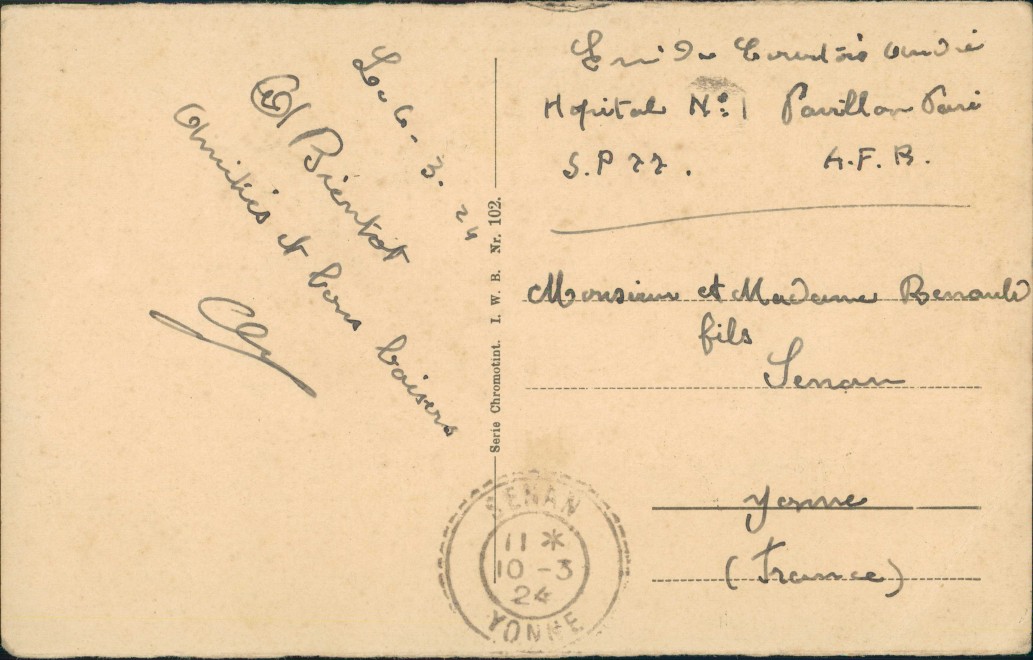 Le 6-3.24
A Bientot
Amitiés et bons baisers
Serie Chromotint. I. W. B. Nr. 102.
de Courtois André
Hopital No 1 Pavillon Paré
S.P 77. A.F.R.
Monsieur et Madame Renault
fils
Senan
Yonne
(France)
SENAN
11 *
10 -3
24
YONNE